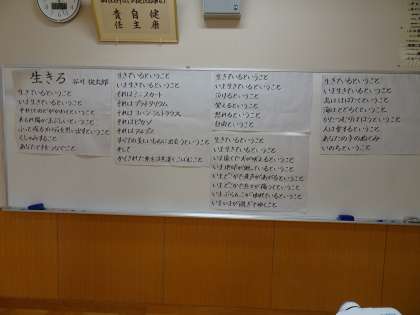 健康
自主
責任
生きる
谷川俊太郎
生きているということ
いま生きているということ
それはのどがかわくということ
木もれ陽がまぶしいということ
ふっと或るメロディを思い出すということ
くしゃみすること
あなたと手をつなぐこと
生きているということ
いま生きているということ
それはミニスカート
それはプラネタリウム
それはヨハン・シュトラウス
それはピカソ
それはアルプス
すべての美しいものに出会うということ
そして
かくされた悪を注意深くこばむこと
生きているということ
いま生きているということ
泣けるということ
笑えるということ
怒れるということ
自由ということ
生きているということ
いま生きているということ
いま遠くで犬が吠えるということ
いま地球が廻っているということ
いまどこかで産声があがるということ
いまどこかで兵士が傷つくということ
いまぶらんこがゆれているということ
いまいまが過ぎてゆくこと
生きているということ
いま生きているということ
鳥ははばたくということ
海はとどろくということ
かたつむりははうということ
人は愛するということ
あなたの手のぬくみ
いのちということ